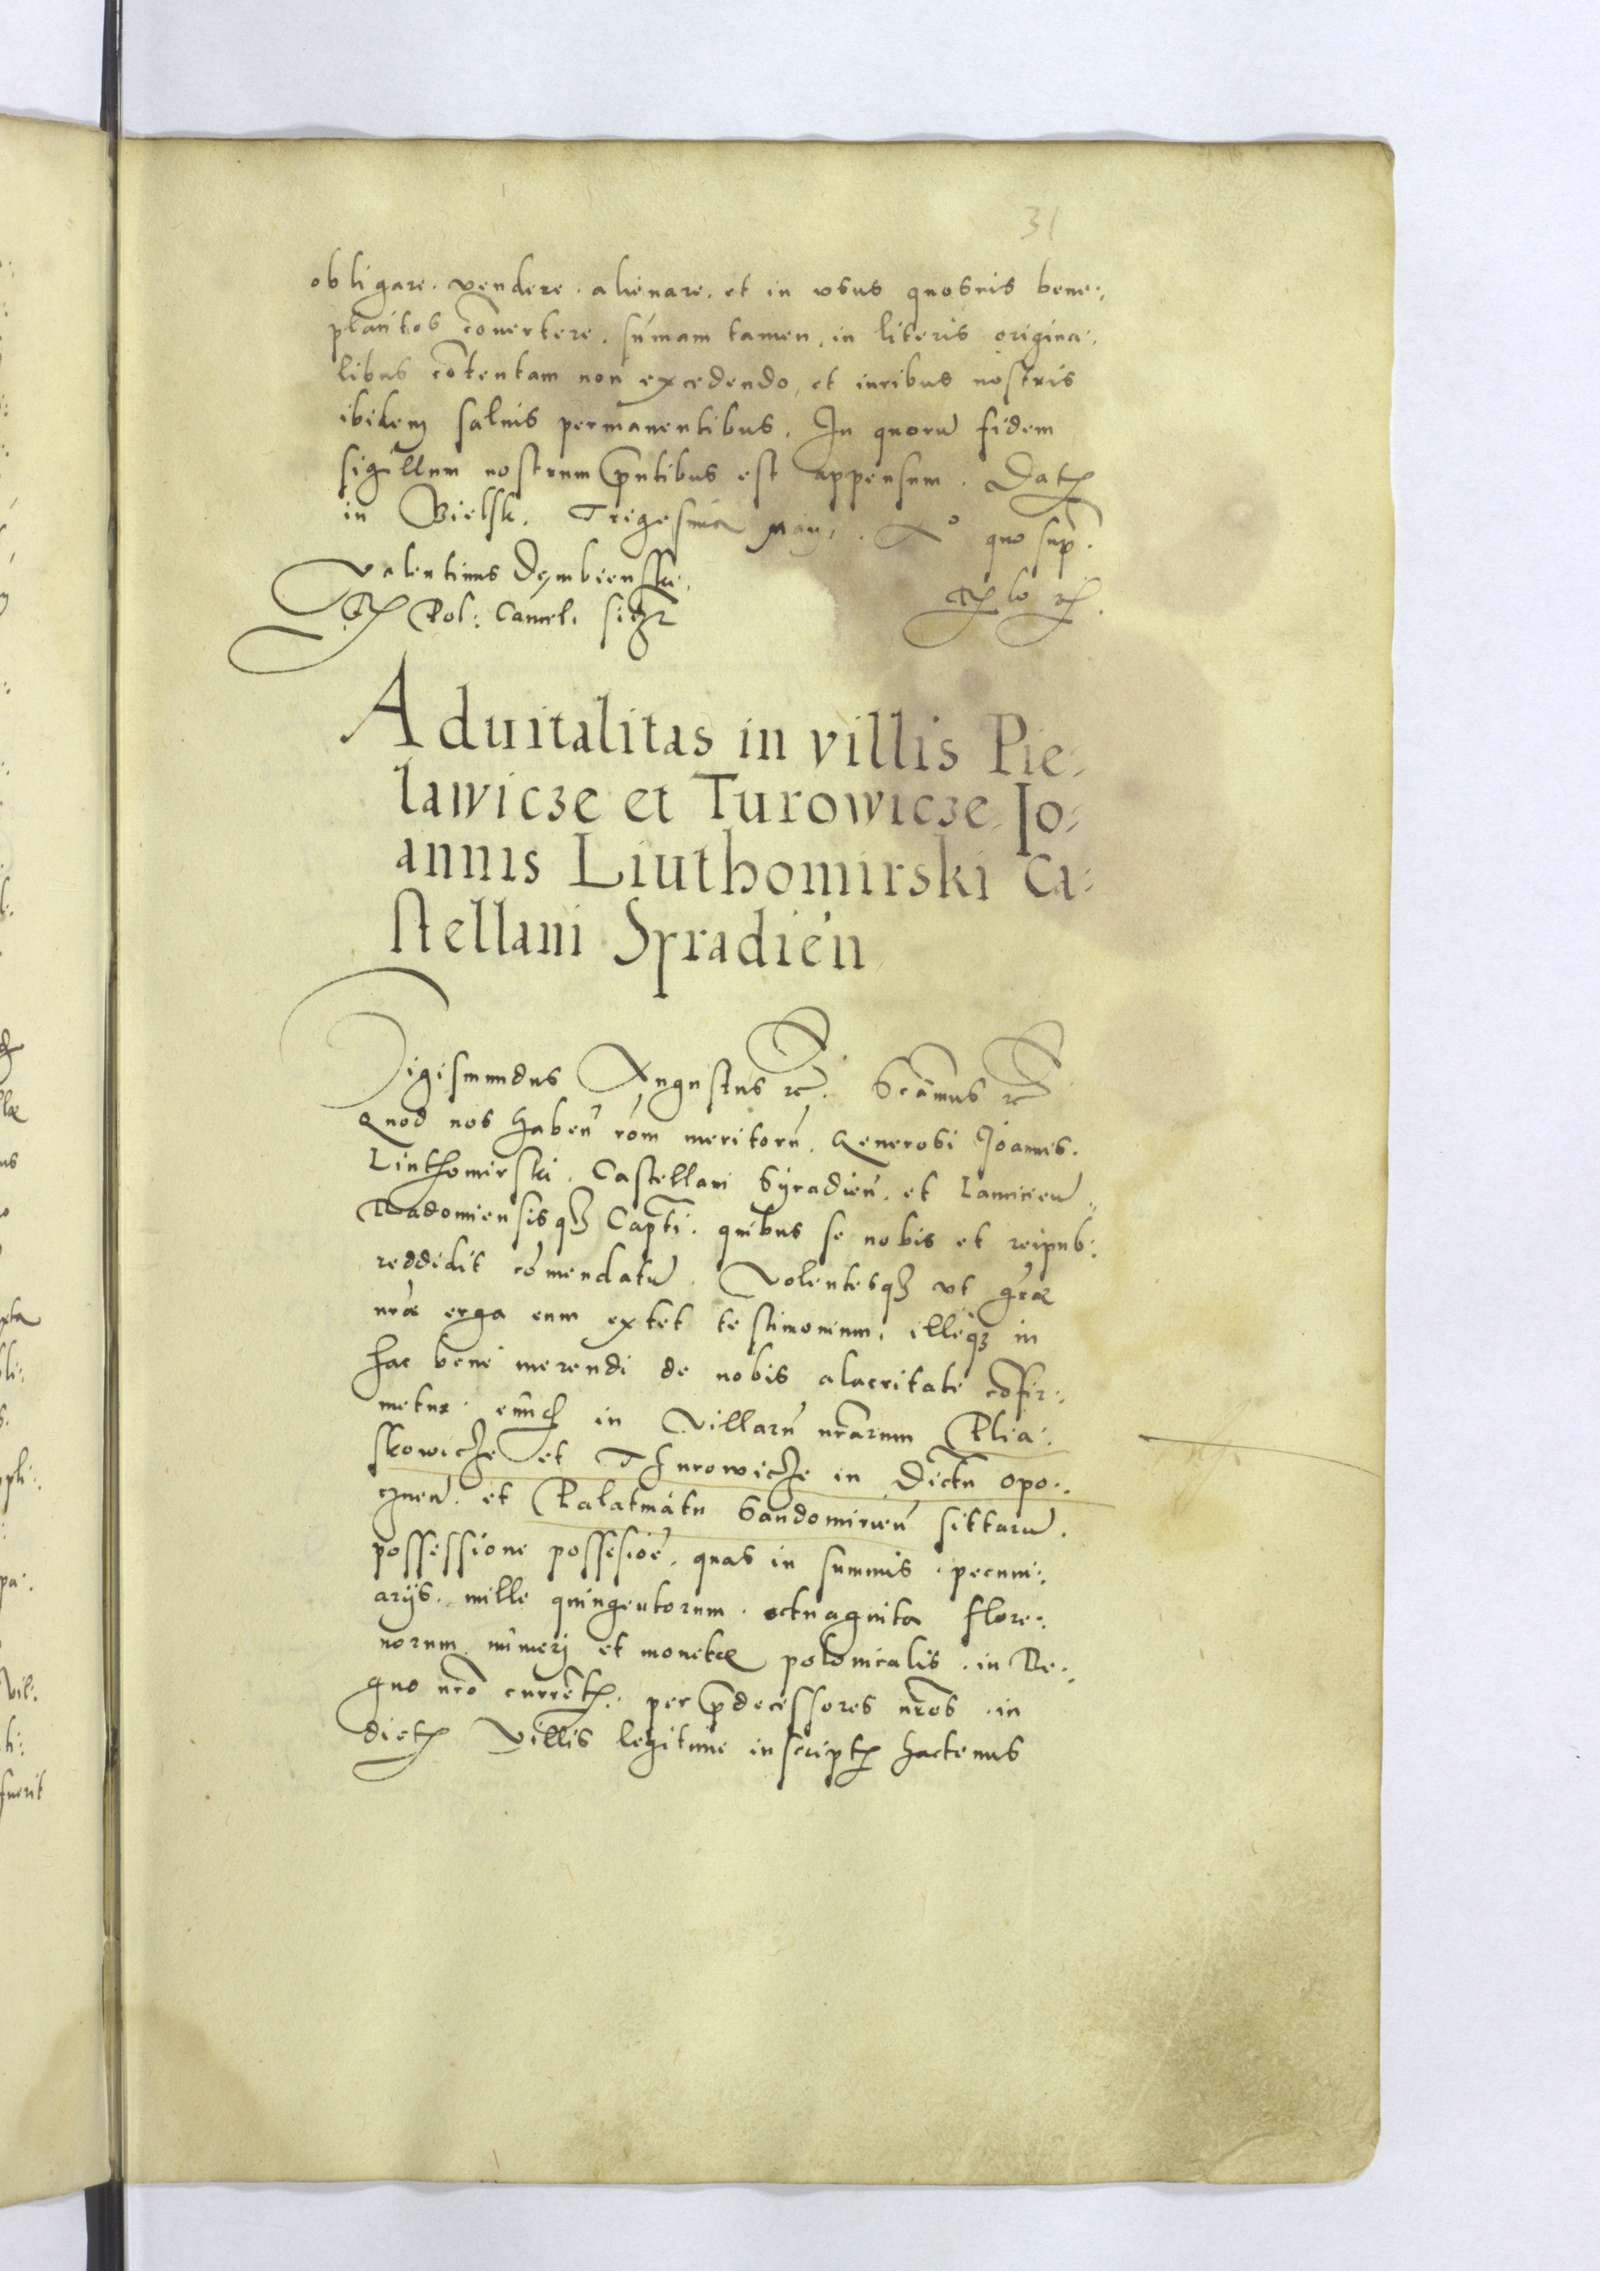 31
obligare. vendere. alienare. et in usus quosvis bene:
placitos cõvertere. sum̃am tamen, in literis origina:
libus cõtentam non excedendo, et iuribus nostris
ibidem salvis permanentibus. In quorũ fidem
sigillum nostrum p̃ntibus est appensum. Dat
in Bielsk. Trigesima May. Ao quo sup̃.
Valentinus Dembienski
R Pol: Cancel. ss
Aduitalitas in villis Pie:
lawicze et Turowicze Jo:
annis Liuthomirski Ca:
stellani Syradień
Sigismundus Augustus rẽ. Sc̃amus rẽ
Quod nos habeñ rõm meritorũ. Generosi Joannis.
Liuthomirski. Castellani Syradieñ. et Lancicieñ
Radomiensisq3 Capt̃i. quibus se nobis et reipub:
reddidit cõmendatũ. Volentesq3 ut gr̃æ
nr̃æ erga eum extet testimonium. illeq3 in
hac bene merendi de nobis alacritate cõfir:
metur. in Villarũ nr̃arum Plia:
skowicze et Thurowicze in Dictu opo:
cznen̄. et Palatinãtu Sandomirieñ sittarũ.
possessione possesiõe. quas in summis. pecuni:
arijs. mille quingentorum. octuaginta flore:
norum. numeri et monetæ polonicalis. in Re:
gno nr̃o currẽt. per p̃decessores nr̃os. in
dict Villis legitime inscript hactenus